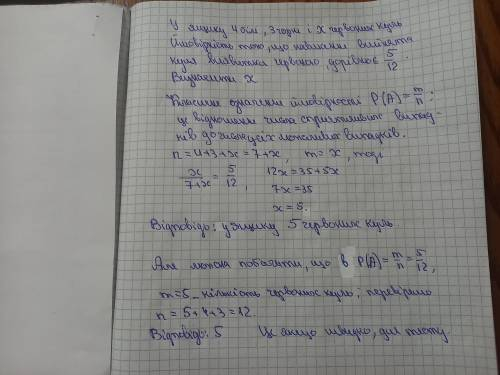 У ящику 4 білі, 3 чорні і x червоних куль
Ймовірність того, що навмання вийнята
куля виявиться червоною, дорівнює 5/12.
Визначити x
Класичне означення ймовірності P(A) = m/n;
це відношення числа сприятливих випад-
ків до числа усіх можливих випадків.
n = 4+3+x = 7+x, m = x, тоді
x/(7+x) = 5/12, 12x = 35+5x
7x = 35
x = 5.
Відповідь: у ящику 5 червоних куль.
Але можна побачити, що в P(A) = m/n = 5/12,
m = 5 - кількість червоних куль, перевіримо
n = 5+4+3 = 12.
Відповідь: 5 Це якщо швидко, для тесту.